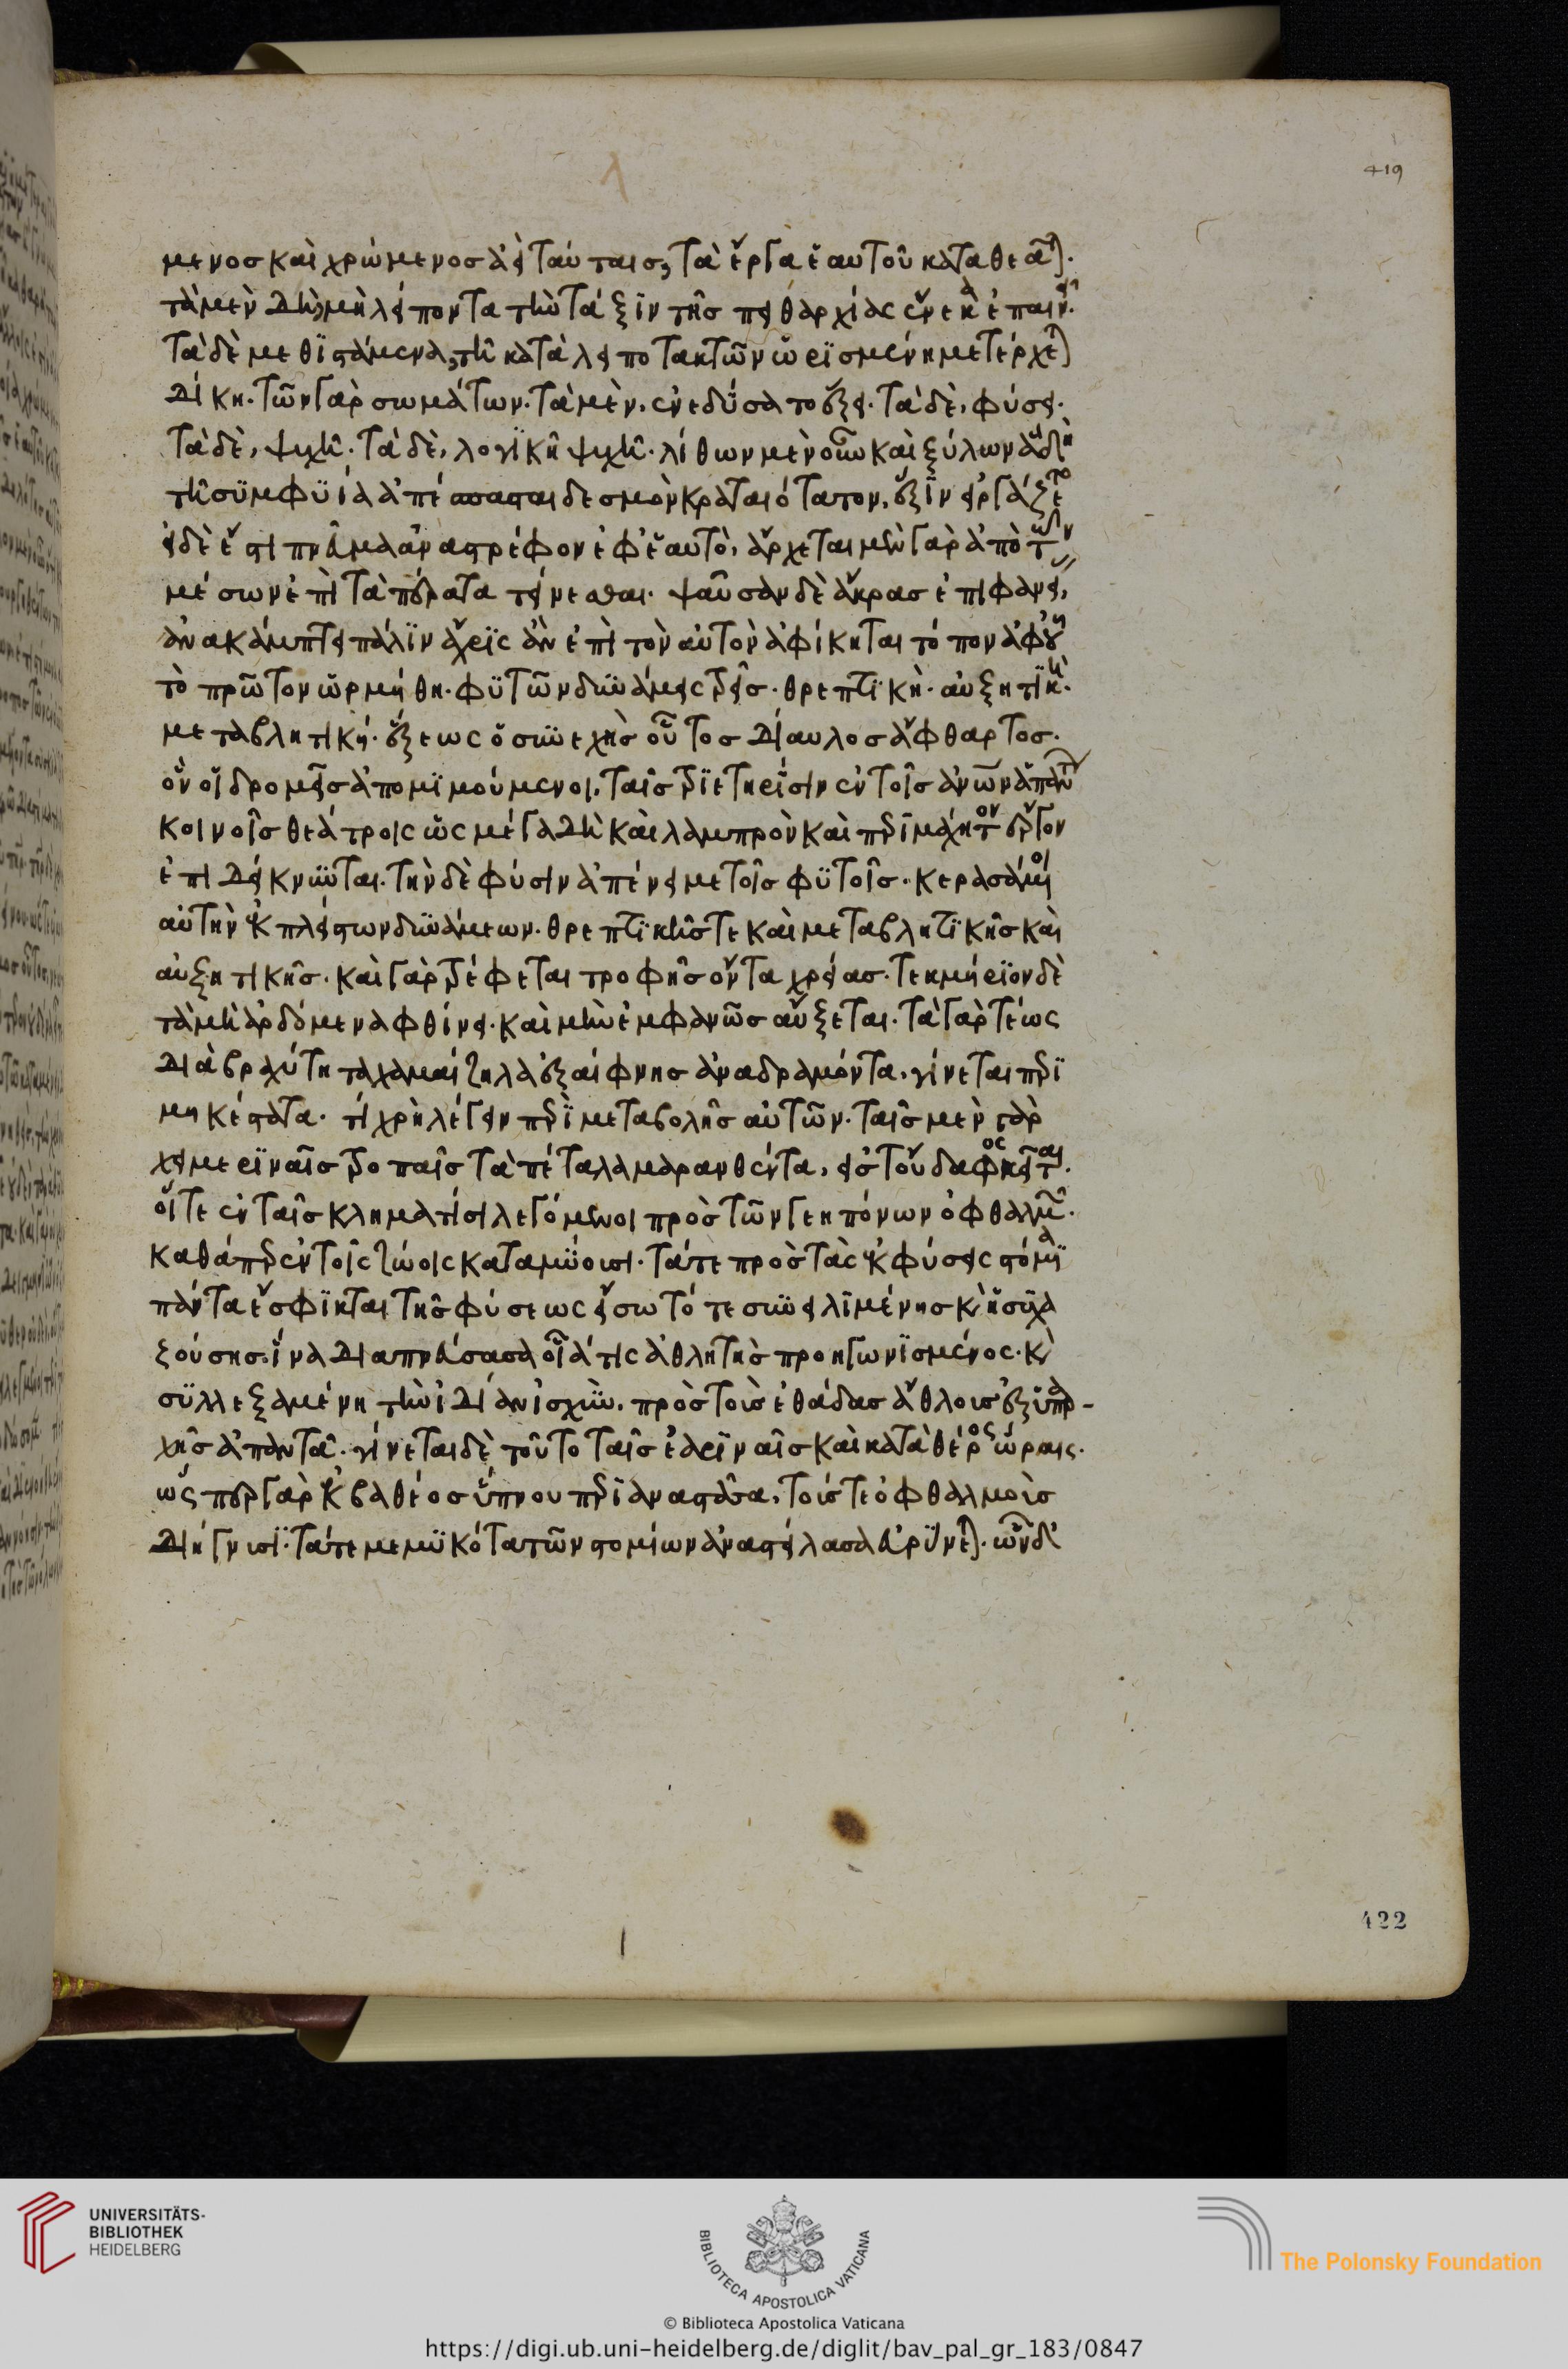 μενος καὶ χρώμενος ἀεὶ ταύταις, τὰ ἔργα ἑαυτοῦ καταθεᾶται.
τὰ μὲν δὴ μὴ λείποντα τὴν τάξιν τῆς πειθαρχίας ἕνεκα ἐπαινεῖ.
τὰ δὲ μεθιστάμενα, τῆ κατὰ λειποτακτῶν ὡρισμένη μετέρχεται
δίκη. τῶν γὰρ σωμάτων. τὰ μὲν, ἐνεδύσατο ἕξει. τὰ δὲ, φύσει.
τὰ δὲ, ψυχῆ. τὰ δὲ, λογικῆ ψυχῆ. λίθων μὲν οὖν καὶ ξύλων ἃ δὴ
τῆ συμφυΐα ἀπέσπασται δεσμὸν κραταιότατον, ἕξιν εἰργάζετο
εἰ δὲ ἔστι πνεῦμα ἀναστρέφον ἐφ' ἑαυτὸ, ἄρχεται μὲν γὰρ ἀπὸ τῶν
μέσων ἐπὶ τὰ πέρατα τείνεσθαι. ψαῦσαν δὲ ἄκρας ἐπιφανεί,
ἀνακάμπτει πάλιν ἄχρις ἂν ἐπὶ τὸν αὐτὸν ἀφίκηται τόπον ἀφ' οὗ
τὸ πρῶτον ὡρμήθη. φυτῶν δυνάμεις τρεῖς. θρεπτικὴ. αὐξητικὴ.
μεταβλητική. ἕξεως ὁ συνεχὴς οὗτος δίαυλος ἄφθαρτος.
ὃν οἱ δρομεῖς ἀπομιμούμενοι, ταῖς τριετηρίσιν ἐν τοῖς ἀνθρώπων ἁπάντων
κοινοῖς θεάτροις ὡς μέγα δὴ καὶ λαμπρὸν καὶ περιμάχητον ἔργον
ἐπιδείκνυνται. τὴν δὲ φύσιν ἀπένειμε τοῖς φυτοῖς. κερασάμενος
αὐτὴν ἐκ πλείστων δυνάμεων. θρεπτικῆς τε καὶ μεταβλητικῆς καὶ
αὐξητικῆς. καὶ γὰρ τρέφεται τροφῆς ὄντα χρεῖας. τεκμήριον δὲ
τὰ μὴ ἀρδόμενα φθίνει. καὶ μὴν ἐμφανῶς αὔξεται. τὰ γὰρ τέως
διὰ βραχύτητα χαμαίζηλα ἐξαίφνης ἀναδραμόντα, γίνεται περι
μηκέστατα. τί χρὴ λέγειν περὶ μεταβολῆς αὐτῶν. ταῖς μὲν γὰρ
χειμεριναῖς τροπαῖς τὰ πέταλα μαρανθέντα, εἰς τοὔδαφος χεῖται.
οἵ τε ἐν ταῖς κληματίσι λεγόμενοι πρὸς τῶν γεηπόνων ὀφθαλμοὶ.
καθάπερ ἐν τοῖς ζώοις καταμύουσι. τά τε πρὸς τὰς ἐκφύσεις στόμια
πάντα ἔσφικται τῆς φύσεως εἴσω τό τε συνειλημένης καὶ ἡσυχα
ξούσης, ἵνα διαπνεύσασα οἷά τις ἀθλητὴς προηγωνισμένος. καὶ
συλλεξαμένη τὴν ἰδίαν ἰσχὺν, πρὸς τοὺς ἐθάδας ἄθλους ἐξ ὑπαρ-
χῆς ἀπαντᾶ. γίνεται δὲ τοῦτο ταῖς ἐαριναῖς καὶ κατὰ θέρος ὥραις.
ὥσπερ γὰρ ἐκ βαθέος ὕπνου περιαναστᾶσα, τούς τε ὀφθαλμοὺς
διήγνυσι. τά τε μεμυκότα τῶν στομίων ἀναστείλασα εὐρύνεται. ὧν δὲ
419
422
UNIVERSITÄTS-
BIBLIOTHEK
HEIDELBERG
BIBLIOTECA APOSTOLICA VATICANA
The Polonsky Foundation
© Biblioteca Apostolica Vaticana
https://digi.ub.uni-heidelberg.de/diglit/bav_pal_gr_183/0847